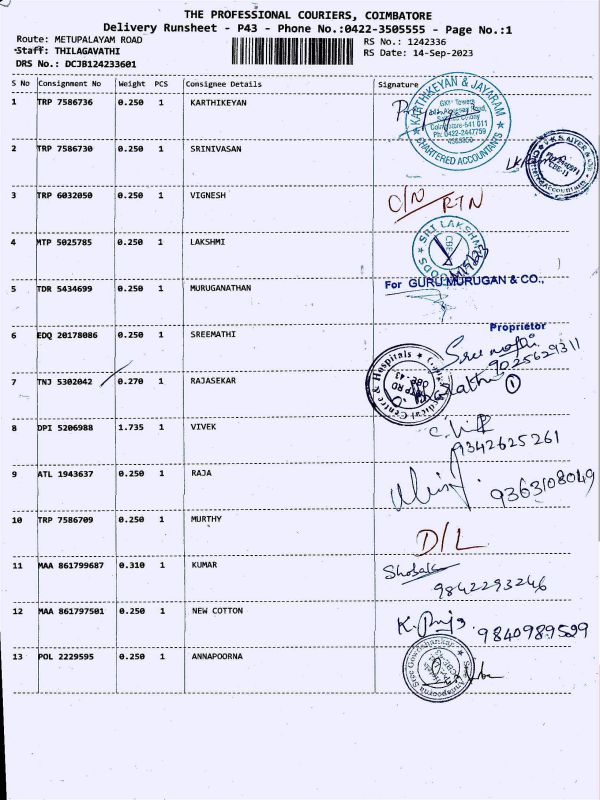 THE PROFESSIONAL COURIERS, COIMBATORE
Delivery Runsheet - P43 - Phone No.:0422-3505555 - Page No.:1
Route: METUPALAYAM ROAD
RS No.: 1242336
Staff: THILAGAVATHI
RS Date: 14-Sep-2023
DRS No.: DCJB124233601
S No Consignment No Weight PCS Consignee Details Signature
1 TRP 7586736 0.250 1 KARTHIKEYAN
KARTHIKEYAN & JAYARAM
CHARTERED ACCOUNTANTS
2 TRP 7586730 0.250 1 SRINIVASAN
3 TRP 6032050 0.250 1 VIGNESH O/N RTN
4 MTP 5025785 0.250 1 LAKSHMI
SRI LAKSHMI
5 TDR 5434699 0.250 1 MURUGANATHAN
For GURU MURUGAN & CO.,
Proprietor
6 EDQ 20178086 0.250 1 SREEMATHI Sreemathi
9025629311
7 TNJ 5302042 0.270 1 RAJASEKAR
1
8 DPI 5206988 1.735 1 VIVEK
9342625261
9 ATL 1943637 0.250 1 RAJA
9363108049
10 TRP 7586709 0.250 1 MURTHY D/L
11 MAA 861799687 0.310 1 KUMAR
9842293246
12 MAA 861797501 0.250 1 NEW COTTON
9840989599
13 POL 2229595 0.250 1 ANNAPOORNA